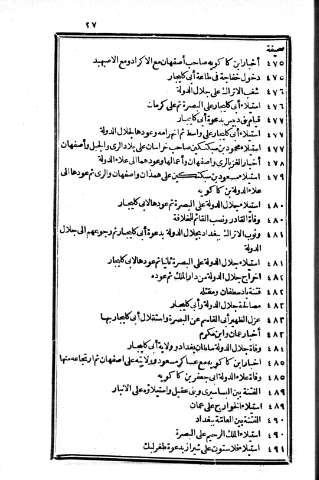 ٢٧
صحيفة
٤٧٥ أخبار ابن كاكويه صاحب أصفهان مع الاكراد ومع الاصبهبد
٤٧٥ دخول خفاجة فى طاعة أبى كاليجار
٤٧٦ شغب الاتراك على جلال الدولة
٤٧٦ استيلاء أبى كاليجار على البصرة ثم على كرمان
٤٧٧ قيام بنى دبيس بدعوة أبى كاليجار
٤٧٧ استيلاء أبى كاليجار على واسط ثم انهزامه وعودها لجلال الدولة
٤٧٧ استيلاء محمود بن سبكتكين صاحب خراسان على بلاد الرى والجبل وأصفهان
٤٧٨ أخبار الغز بالرى وأصفهان وأعمالها وعودهما الى علاء الدولة
٤٧٩ استيلاء مسعود بن سبكتكين على همذان وأصفهان والرى ثم عودها الى علاء الدولة بن كاكويه
٤٨٠ استيلاء جلال الدولة على البصرة ثم عودها لابى كاليجار
٤٨٠ وفاة القادر ونصب القائم للخلافة
٤٨١ وثوب الاتراك ببغداد بجلال الدولة بدعوة أبى كاليجار ثم رجوعهم الى جلال الدولة
٤٨١ استيلاء جلال الدولة على البصرة ثانيا ثم عودها لابى كاليجار
٤٨٢ اخراج جلال الدولة من دار الملك ثم عوده
٤٨٢ فتنة بادسطفان ومقتله
٤٨٢ مصالحة جلال الدولة وأبى كاليجار
٤٨٣ عزل الظهير أبى القاسم عن البصرة واستقلال أبى كاليجار بها
٤٨٣ أخبار عمان وابن مكرم
٤٨٤ وفاة جلال الدولة سلطان بغداد وولاية أبى كاليجار
٤٨٤ أخبار ابن كاكويه مع عساكر مسعود وولايته على اصفهان ثم ارتجاعها منها
٤٨٥ وفاة علاء الدولة أبى جعفر بن كاكويه
٤٨٩ الفتنة بين البساسيرى وبنى عقيل واستيلاؤه على الانبار
٤٨٩ استيلاء الخوارج على عمان
٤٩٠ الفتنة بين العامة ببغداد
٤٩٠ استيلاء الملك الرحيم على البصرة
٤٩١ استيلاء فلاستون على شيراز بدعوة طغرلبك